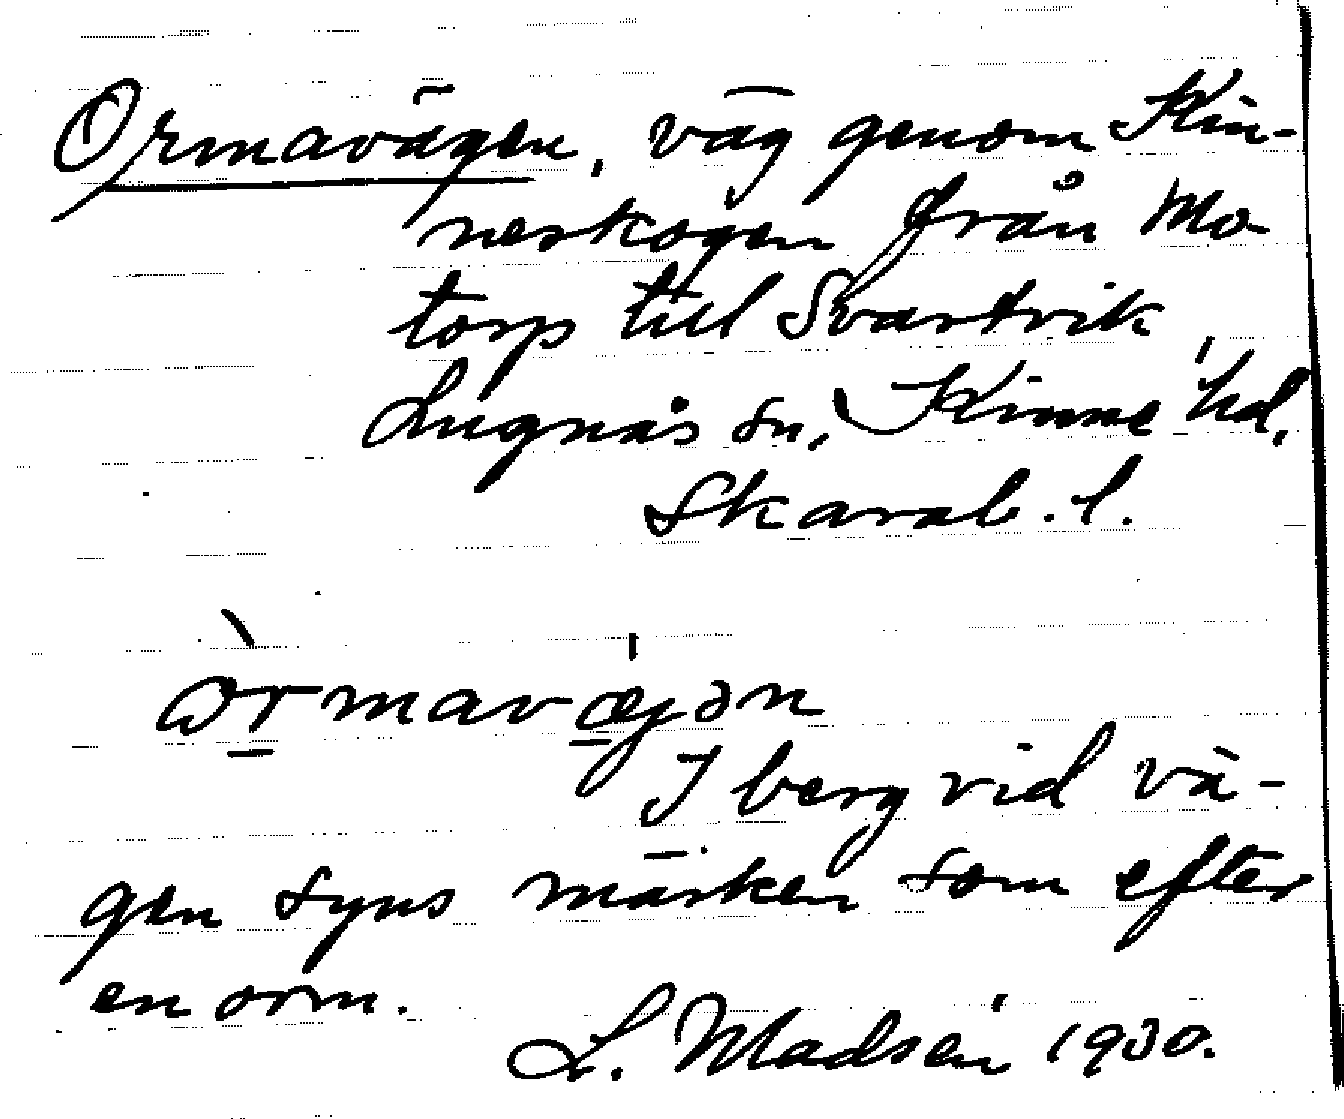 Ormavägen, väg genom Kin-
neskogen från Mo-
torp till Svartvik,
Lugnås sn, Kinne hd,
Skarab. l.
òrmavægən
I berg vid vä-
gen syns märken som efter
en orm.
L. Madsén 1930.